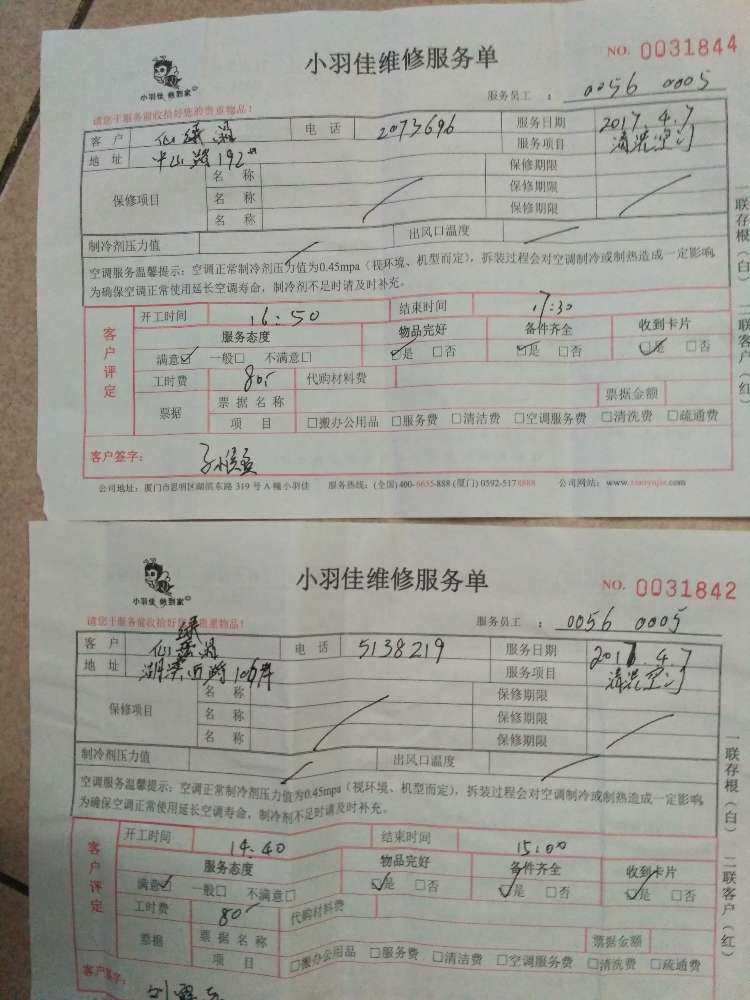 小羽佳维修服务单
NO. 0031844
小羽佳 帮到家
服务员工 : 0056 0005
请您于服务前收拾好您的贵重物品!
客 户 电 话 2073696 服务日期 2017.4.7
地 址 中山路192 服务项目 清洗空
保修项目 名 称 保修期限
名 称 保修期限
名 称 保修期限
制冷剂压力值 出风口温度
空调服务温馨提示:空调正常制冷剂压力值为0.45mpa(视环境、机型而定),拆装过程会对空调制冷或制热造成一定影响,
为确保空调正常使用延长空调寿命,制冷剂不足时请及时补充。
客户评定
开工时间 16:50 结束时间 17:30
服务态度 物品完好 备件齐全 收到卡片
满意☑ 一般□ 不满意□ ☑是 □否 ☑是 □否 ☑是 □否
工时费 80.- 代购材料费
票据 票 据 名 称 票据金额
项 目 □搬办公用品 □服务费 □清洁费 □空调服务费 □清洗费 □疏通费
客户签字:
公司地址:厦门市思明区湖滨东路 319 号 A 幢小羽佳 服务热线:(全国)400-6655-888 (厦门) 0592-5178888 公司网站:www.xiaoyujia.com
一联存根(白) 二联客户(红)
小羽佳维修服务单
NO. 0031842
小羽佳 帮到家
服务员工 : 0056 0005
请您于服务前收拾好您的贵重物品!
客 户 电 话 5138219 服务日期 2017.4.7
地 址 湖滨西路 服务项目 清洗空
保修项目 名 称 保修期限
名 称 保修期限
名 称 保修期限
制冷剂压力值 出风口温度
空调服务温馨提示:空调正常制冷剂压力值为0.45mpa(视环境、机型而定),拆装过程会对空调制冷或制热造成一定影响,
为确保空调正常使用延长空调寿命,制冷剂不足时请及时补充。
客户评定
开工时间 14:40 结束时间 15:00
服务态度 物品完好 备件齐全 收到卡片
满意☑ 一般□ 不满意□ ☑是 □否 ☑是 □否 ☑是 □否
工时费 80- 代购材料费
票据 票 据 名 称 票据金额
项 目 □搬办公用品 □服务费 □清洁费 □空调服务费 □清洗费 □疏通费
客户签字:
一联存根(白) 二联客户(红)